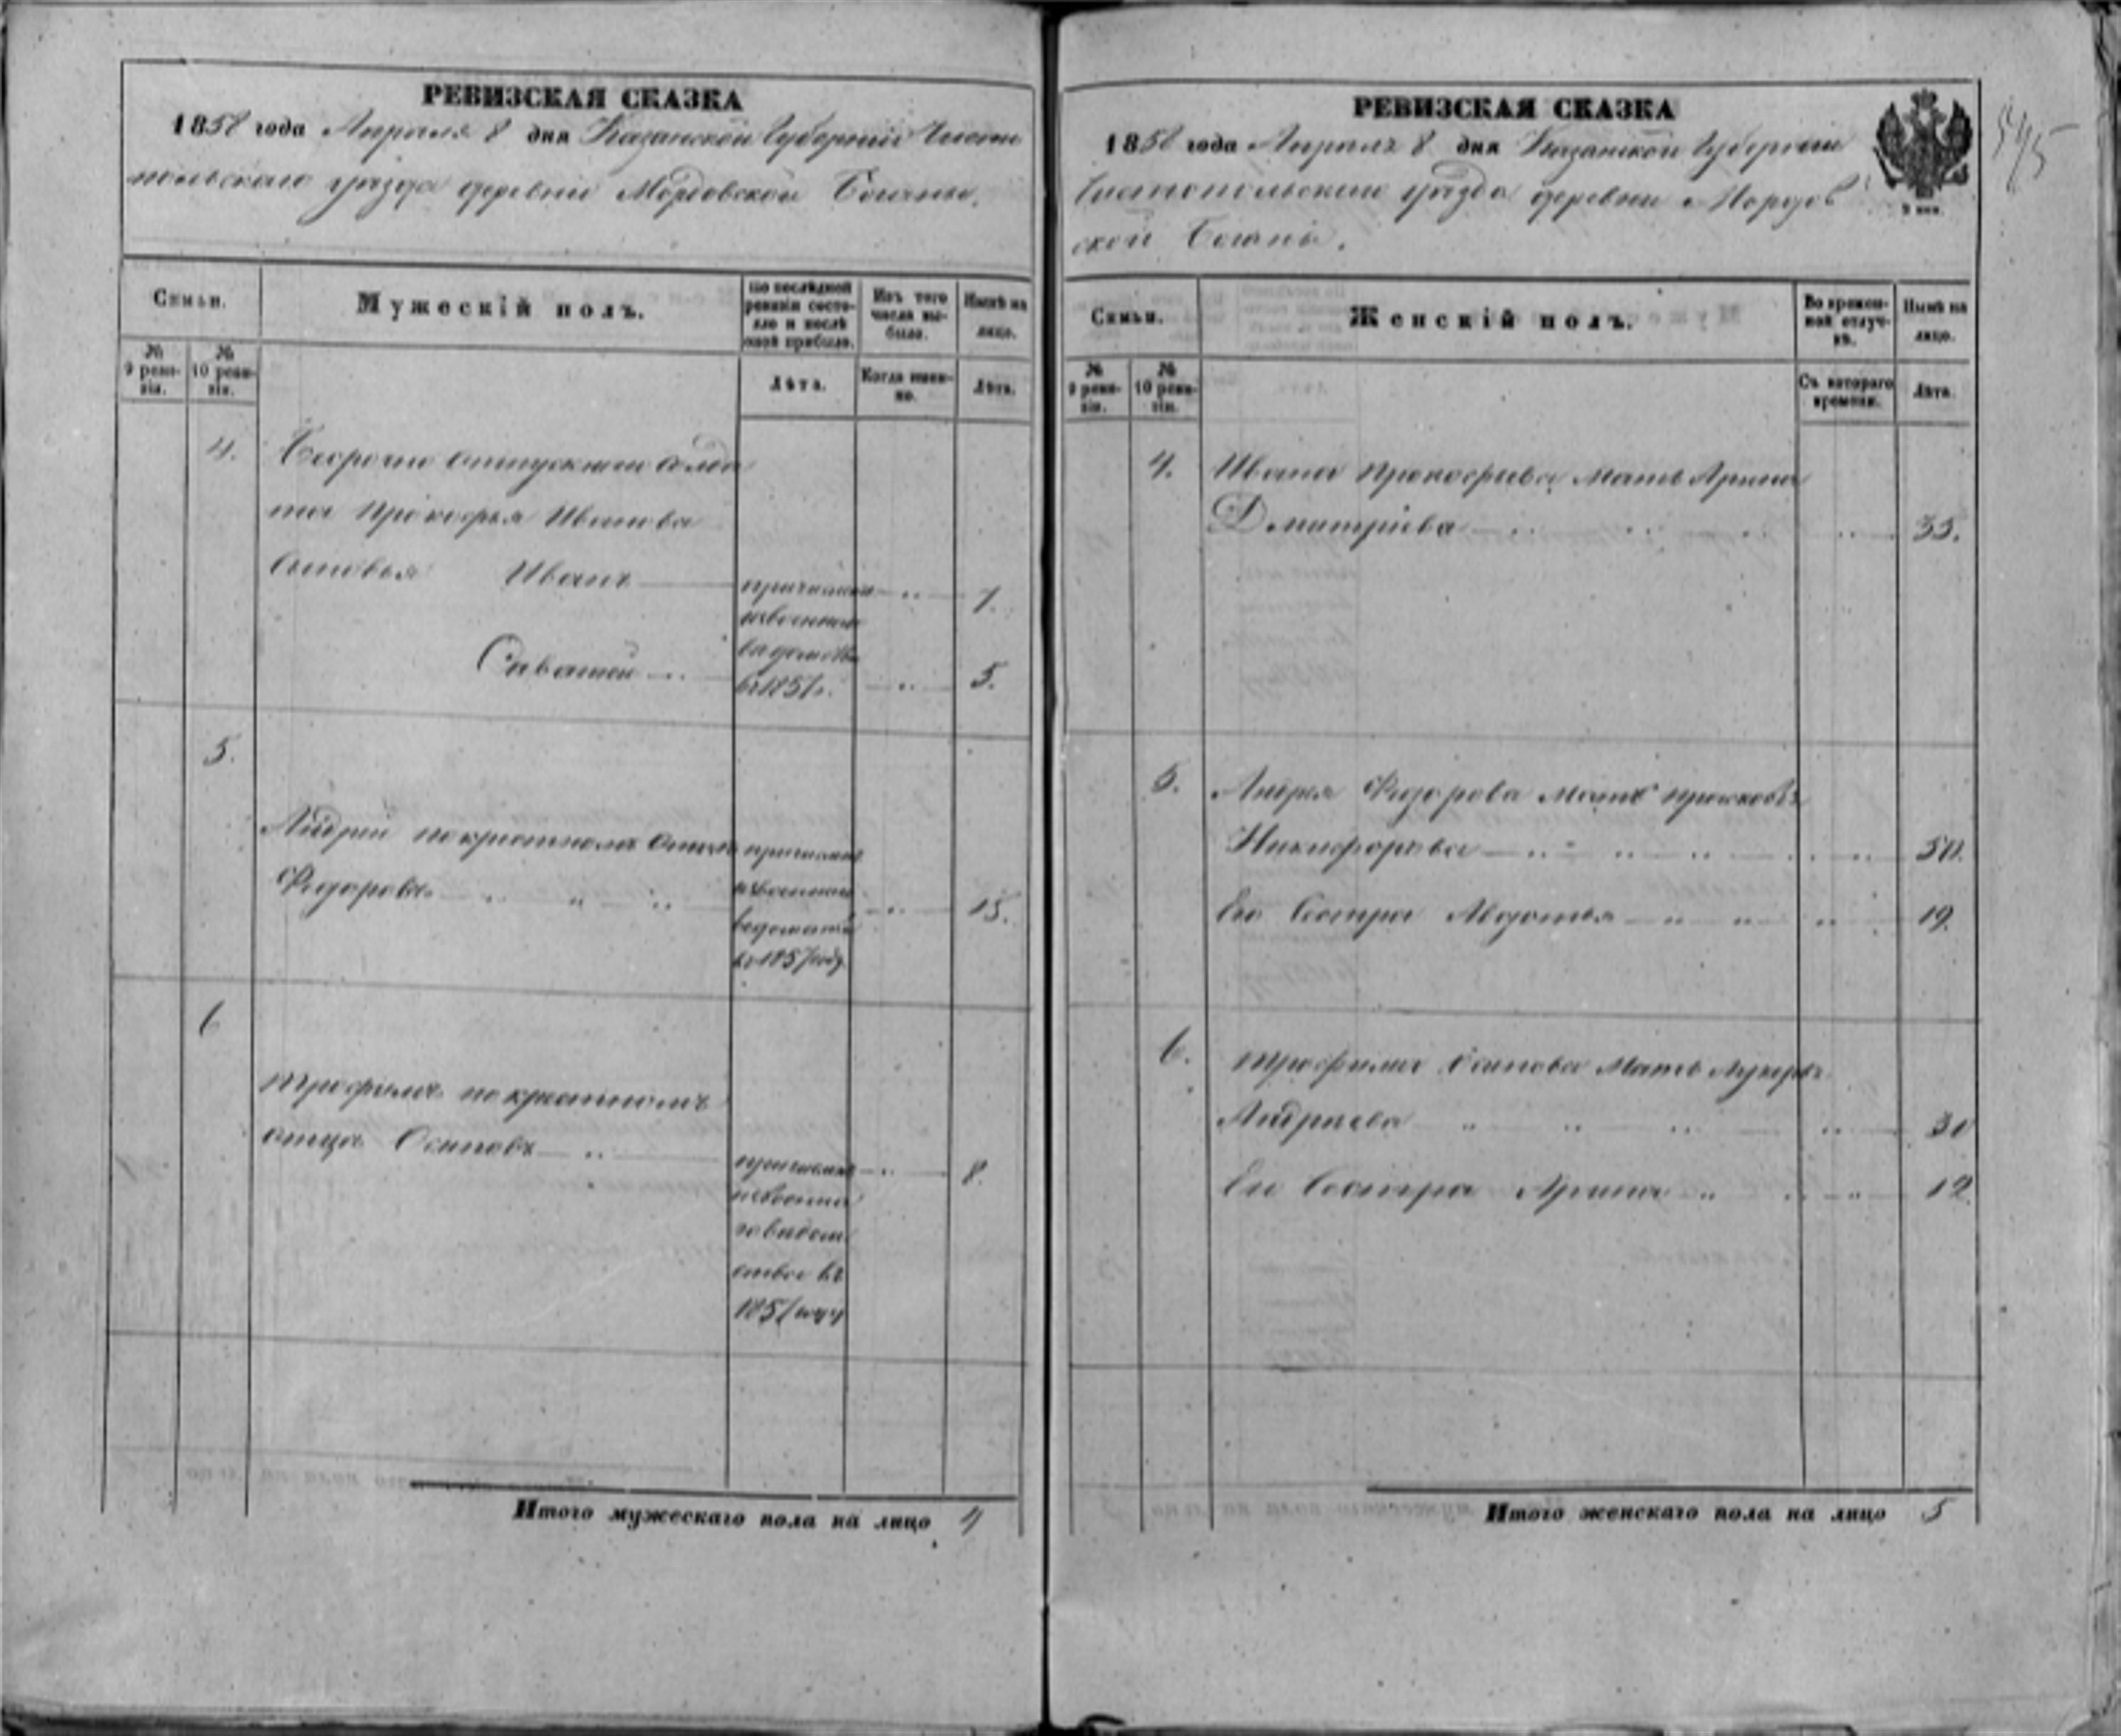 РЕВИЗСКАЯ СКАЗКА
1858 года Апреля 8 дня Казанской Губернии Чисто
польскаго уезда деревни Мордовской Баганы.
Семьи.
Мужескій полъ.
По последней ревизіи состояло и после оной прибыло.
Изъ того числа выбыло.
Ныне на лицо.
№ 9 ревизіи.
№ 10 ревизіи.
Лѣта.
Когда именно.
Лѣта.
4.
Безсрочно отпускнаго Солда
та Прокофья Иванова
Сыновья Иванъ
причислен
7.
извоеннаго
ведомства
Саватей
в 1857г.
5.
5.
Андрей по крестному Отцу
причислен
Федоровъ
15.
ведомства
в 1857 году
6
Трофимъ по крестному
отца Осиповъ
причислен
8.
го ведом
ства въ
1857 году
Итого мужескаго пола на лицо 4
РЕВИЗСКАЯ СКАЗКА
1858 года Апреля 8 дня Казанской Губернии
Чистопольскаго уезда деревни Мордов
ской Баганы.
9 коп.
Семьи.
Женскій полъ.
Во временной отлучкѣ.
Нынѣ на лицо.
№ 9 ревизіи.
№ 10 ревизіи.
Съ котораго времени.
Лѣта.
4.
Ивана Прокофьева Мать Арина
Дмитриева
35.
5.
Андрея Федорова Мать
Никифорова
50.
Его Сестра Авдотья
19.
6.
Трофима Осипова Мать Лукерья
Андреева
30
Ево Сестра Арина
12.
Итого женскаго пола на лицо 5